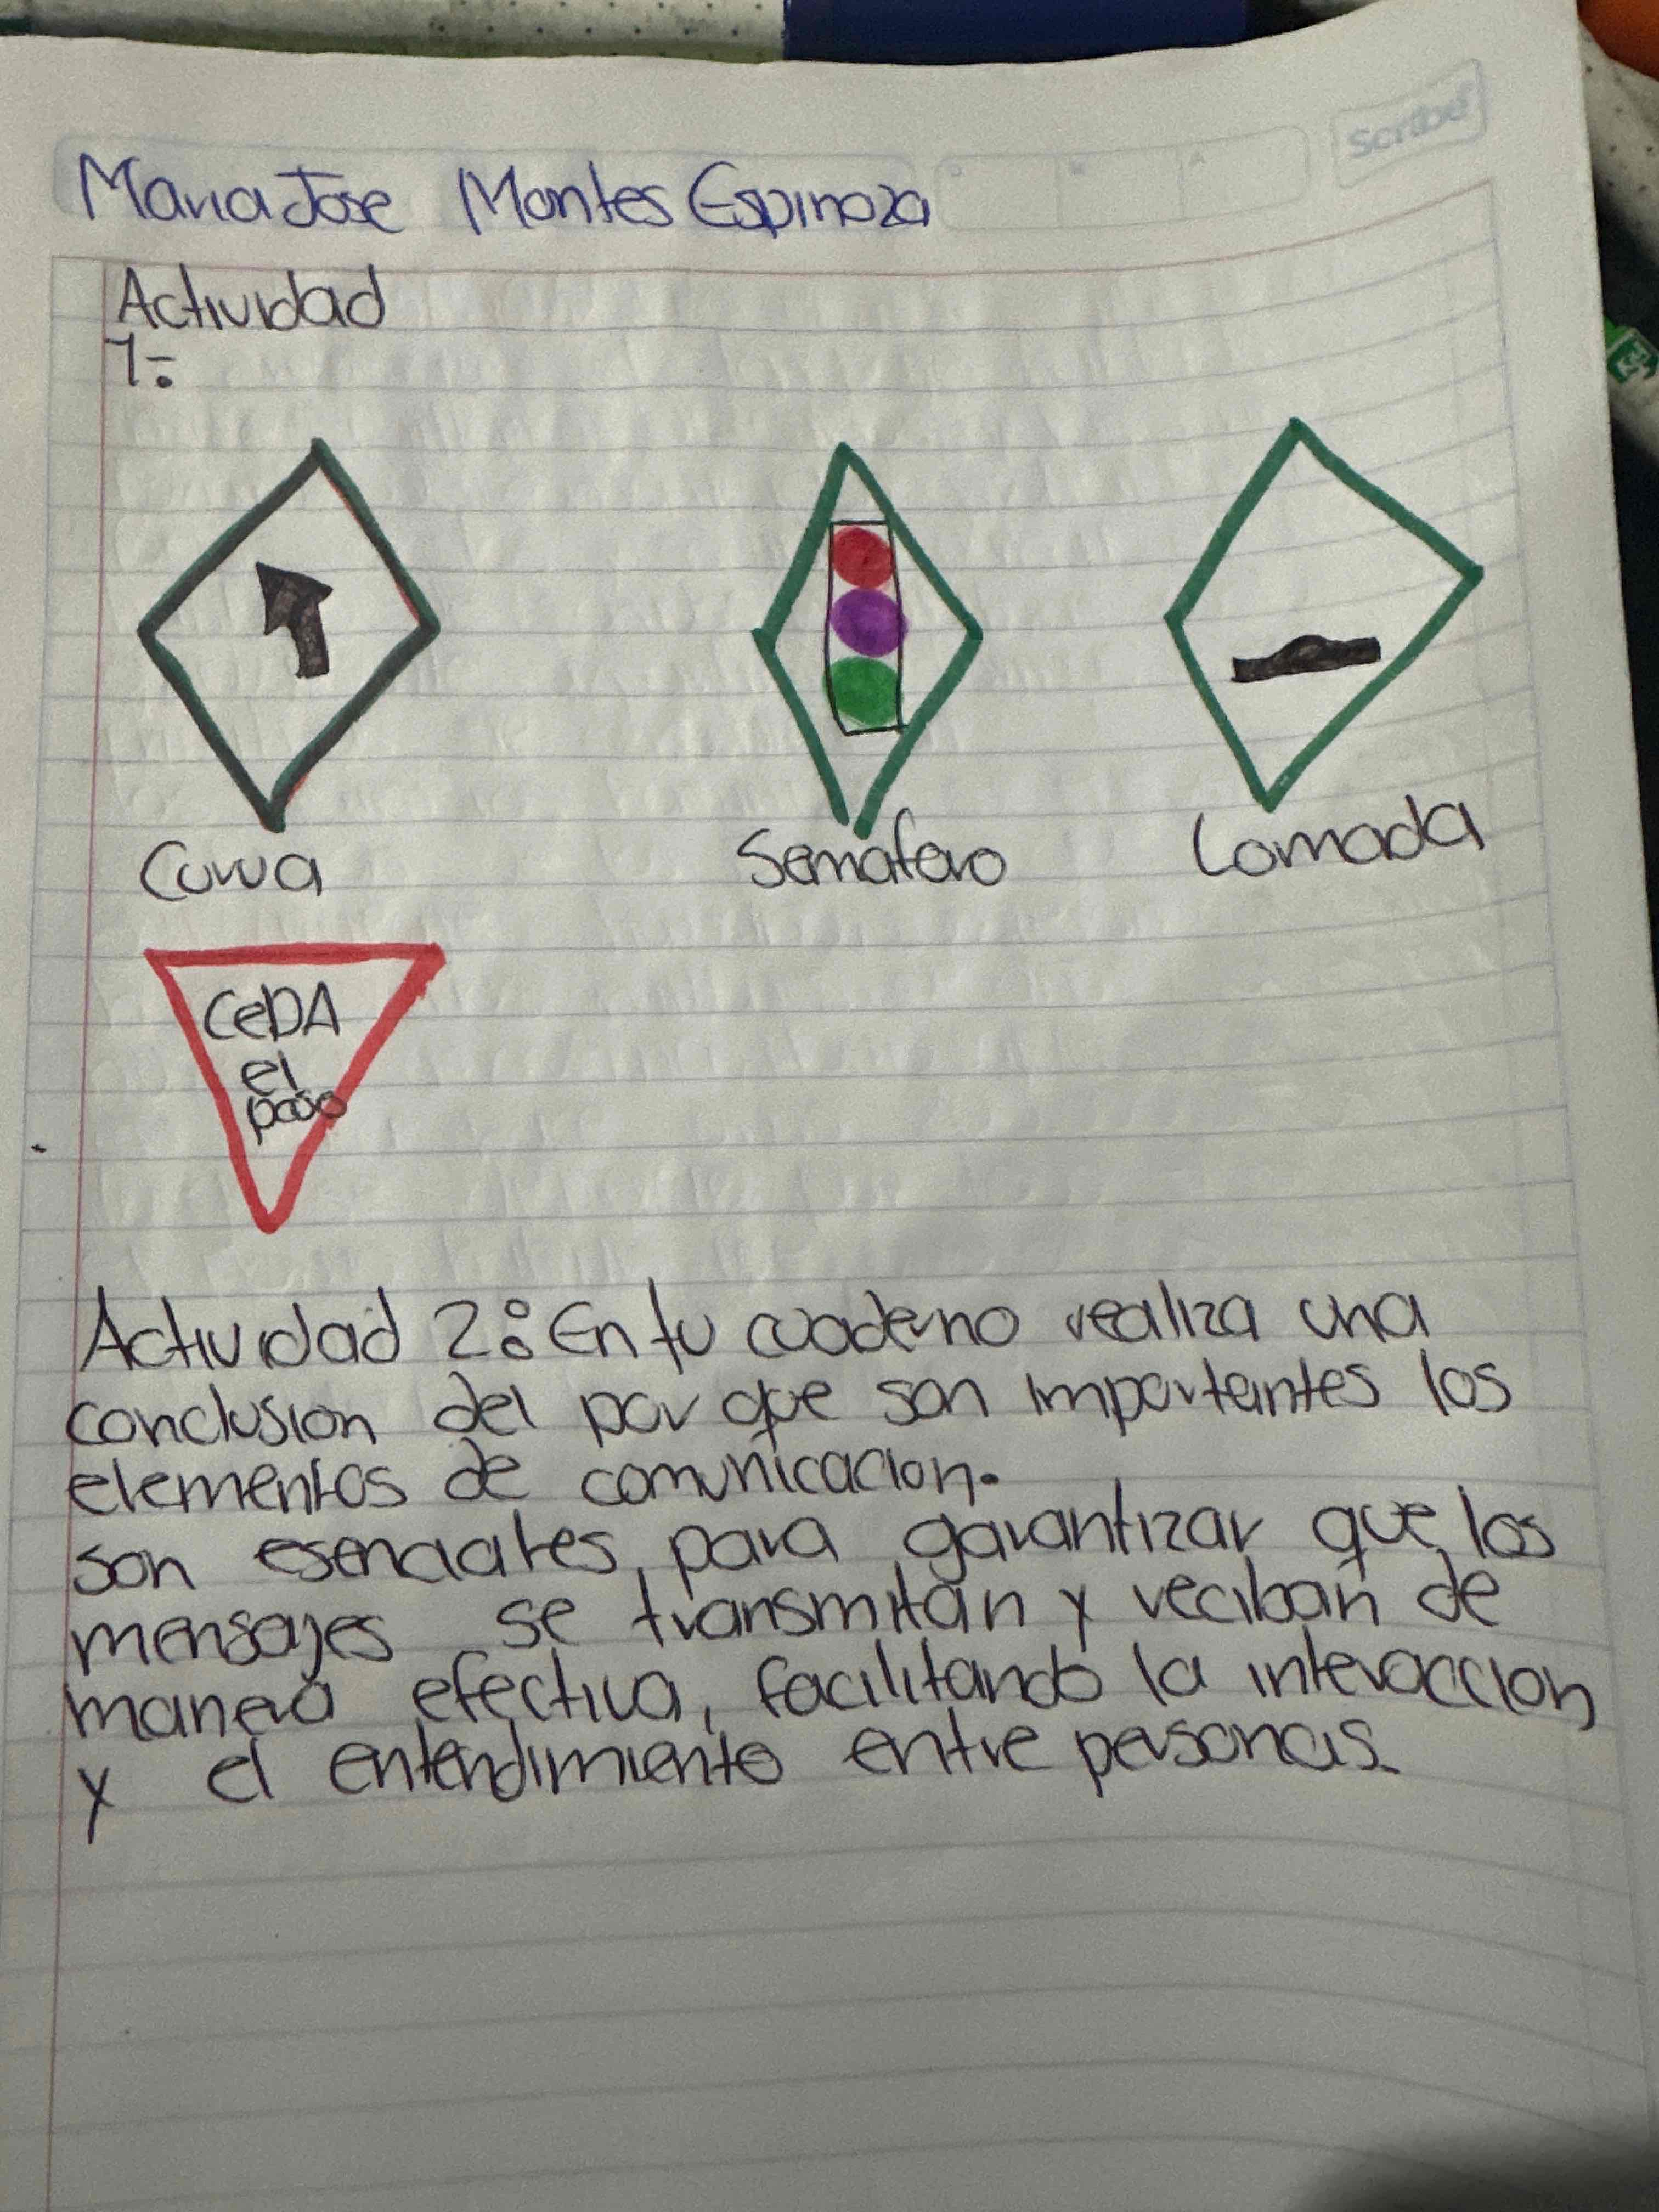 Scribe
Maria Jose Montes Espinoza
Actividad
1:
Curva
Semaforo
Lomada
CeDA
el
paso
Actividad 2: En tu cuaderno realiza una
conclusion del por que son importantes los
elementos de comunicacion.
son esenciales, para garantizar que los
mensajes se transmitan y reciban de
manera efectiva, facilitando la interaccion
y el entendimiento entre personas.